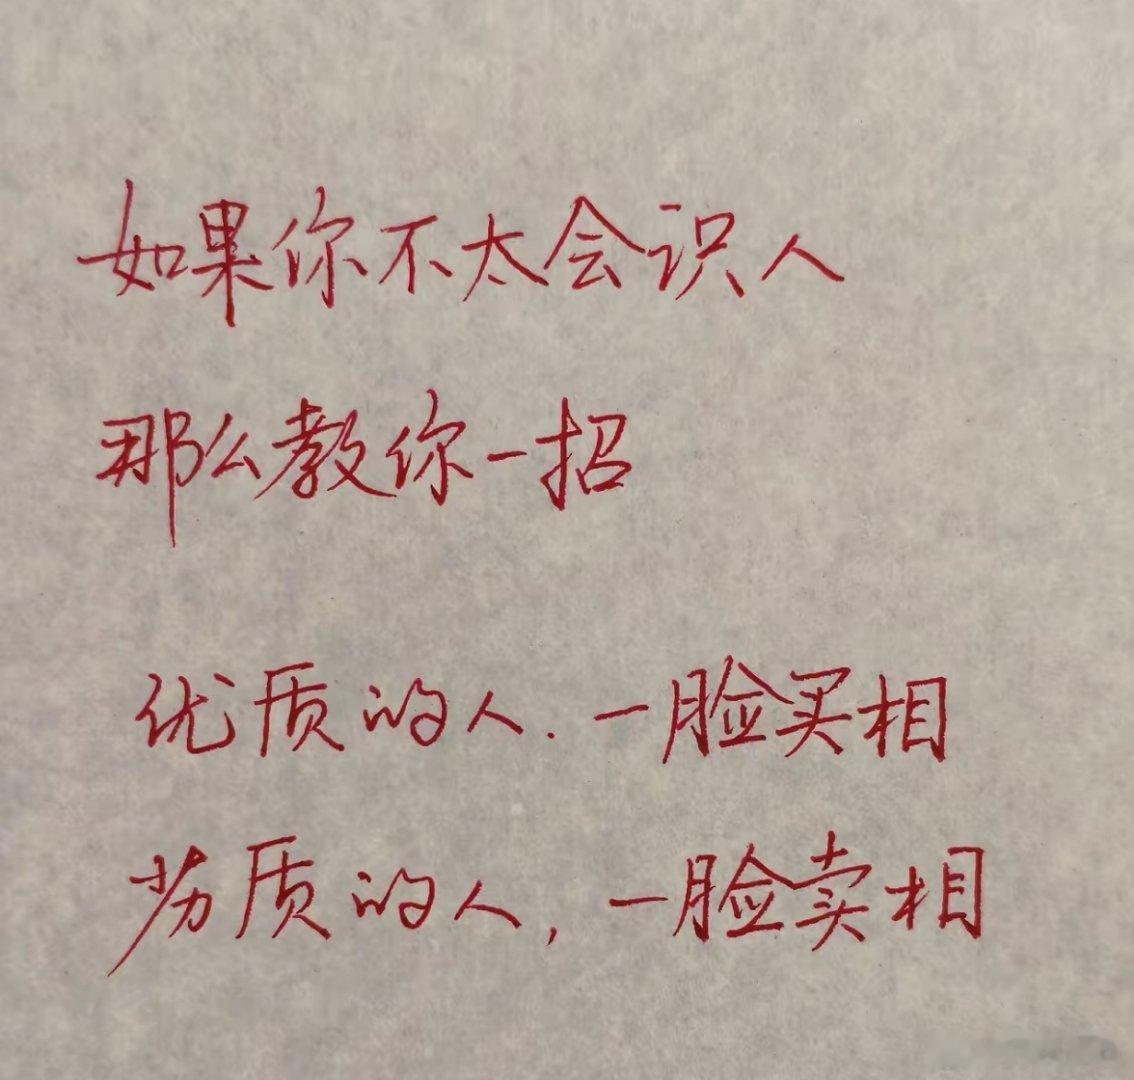 如果你不太会识人
那么教你一招
优质的人.一脸买相
劣质的人,一脸卖相